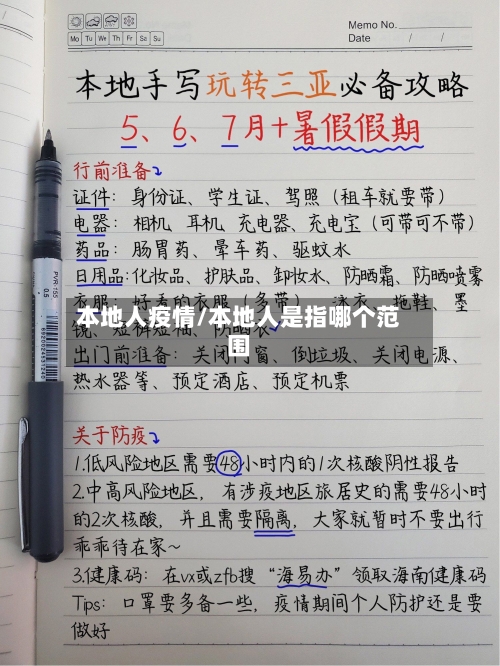 Memo No.
Mo Tu We Th Fr Sa Su
Date / /
本地手写玩转三亚必备攻略
5、6、7月+暑假假期
行前准备
证件：身份证、学生证、驾照（租车就要带）
电器：相机、耳机、充电器、充电宝（可带可不带）
药品：肠胃药、晕车药、驱蚊水
日用品：化妆品、护肤品、卸妆水、防晒霜、防晒喷雾
衣服：好看的衣服（多带）、泳衣、拖鞋、墨
镜、短裤短袖、防晒衣
本地人疫情/本地人是指哪个范
围
出门前准备：关闭门窗、倒垃圾、关闭电源、
热水器等、预定酒店、预定机票
关于防疫
1.低风险地区需要48小时内的1次核酸阴性报告
2.中高风险地区，有涉疫地区旅居史的需要48小时
的2次核酸，并且需要隔离，大家就暂时不要出行
乖乖待在家~
3.健康码：在vx或zfb搜“海易办”领取海南健康码
Tips：口罩要多备一些，疫情期间个人防护还是要
做好
PVR-155
0.5